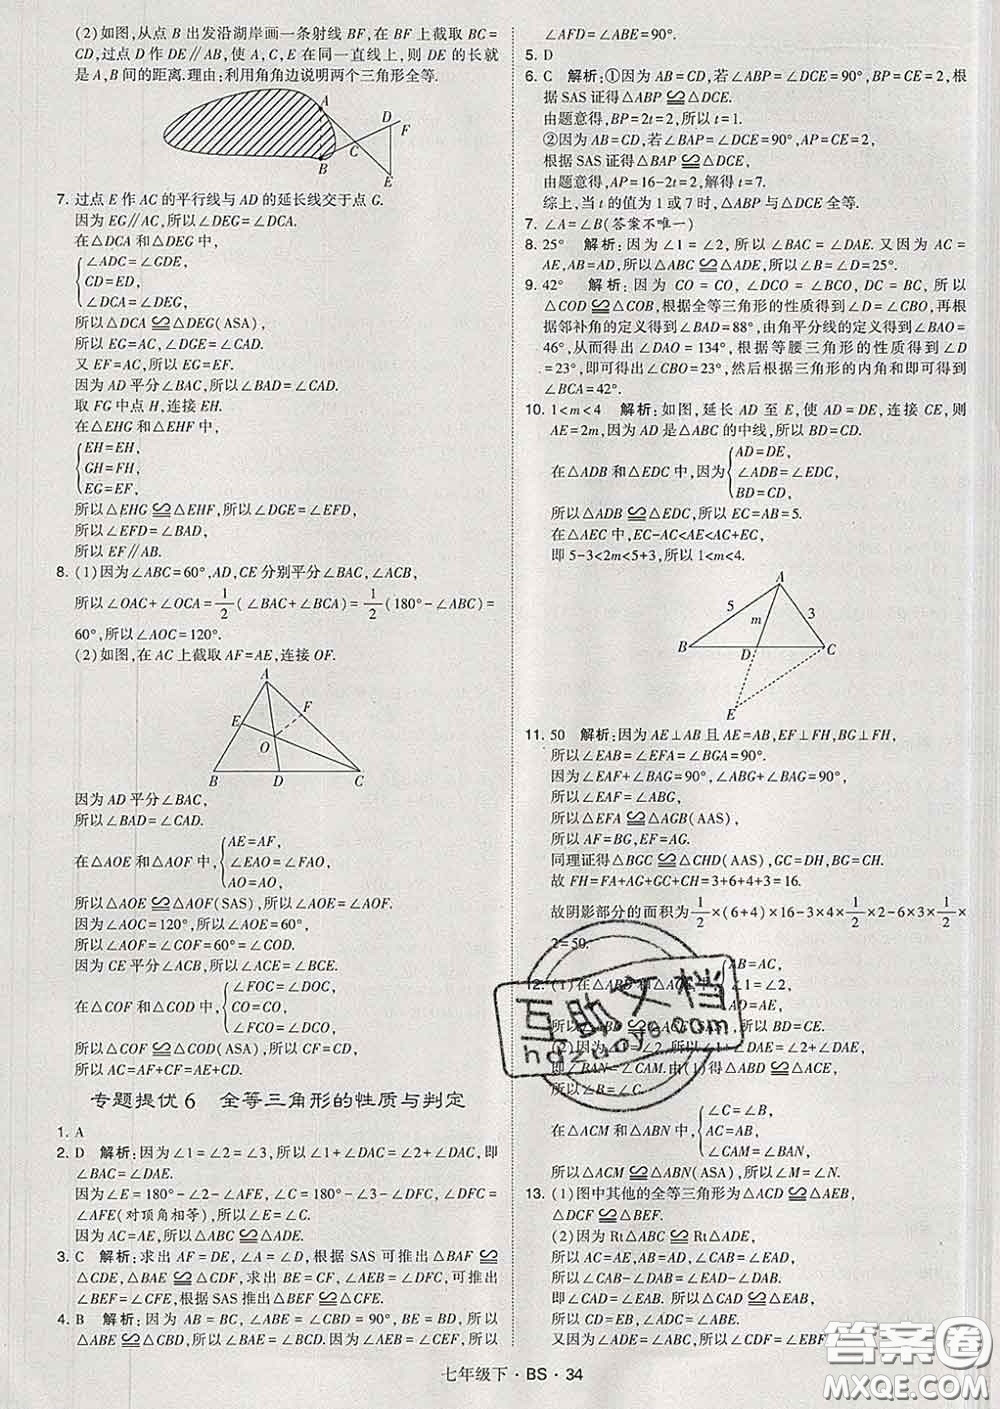 (2)如图,从点 B 出发沿湖岸画一条射线 BF,在 BF 上截取 BC=
CD,过点 D 作 DE∥AB,使 A,C,E 在同一直线上,则 DE 的长就
是 A,B 间的距离.理由:利用角角边说明两个三角形全等.
A
D
F
C
B
E
7. 过点 E 作 AC 的平行线与 AD 的延长线交于点 G.
因为 EG∥AC,所以∠DEG=∠DCA.
在△DCA 和△DEG 中,
∠ADC=∠GDE,
CD=ED,
∠DCA=∠DEG,
所以△DCA≌△DEG(ASA),
所以 EG=AC,∠DGE=∠CAD.
又 EF=AC,所以 EG=EF.
因为 AD 平分∠BAC,所以∠BAD=∠CAD.
取 FG 中点 H,连接 EH.
在△EHG 和△EHF 中,
EH=EH,
GH=FH,
EG=EF,
所以△EHG≌△EHF,所以∠DGE=∠EFD,
所以∠EFD=∠BAD,
所以 EF∥AB.
8. (1)因为∠ABC=60°,AD,CE 分别平分∠BAC,∠ACB,
所以∠OAC+∠OCA=1/2(∠BAC+∠BCA)=1/2(180°-∠ABC)=
60°,所以∠AOC=120°.
(2)如图,在 AC 上截取 AF=AE,连接 OF.
A
F
E
O
B D C
因为 AD 平分∠BAC,
所以∠BAD=∠CAD.
在△AOE 和△AOF 中,
AE=AF,
∠EAO=∠FAO,
AO=AO,
所以△AOE≌△AOF(SAS),所以∠AOE=∠AOF.
因为∠AOC=120°,所以∠AOE=60°,
所以∠AOF=∠COF=60°=∠COD.
因为 CE 平分∠ACB,所以∠ACE=∠BCE.
在△COF 和△COD 中,
∠FOC=∠DOC,
CO=CO,
∠FCO=∠DCO,
所以△COF≌△COD(ASA),所以 CF=CD,
所以 AC=AF+CF=AE+CD.
专题提优 6 全等三角形的性质与判定
1. A
2. D 解析:因为∠1=∠2=∠3,所以∠1+∠DAC=∠2+∠DAC,即
∠BAC=∠DAE.
因为∠E=180°-∠2-∠AFE,∠C=180°-∠3-∠DFC,∠DFC=
∠AFE(对顶角相等),所以∠E=∠C.
因为 AC=AE,所以△ABC≌△ADE.
3. C 解析:求出 AF=DE,∠A=∠D,根据 SAS 可推出△BAF≌
△CDE,△BAE≌△CDF,求出 BE=CF,∠AEB=∠DFC,可推出
∠BEF=∠CFE,根据 SAS 推出△BEF≌△CFE.
4. B 解析:因为 AB=BC,∠ABE=∠CBD=90°,BE=BD,所以
△ABE≌△CBD,所以∠BAE=∠BCD.因为∠AEB=∠CEF,所以
∠AFD=∠ABE=90°.
5. D
6. C 解析:①因为 AB=CD,若∠ABP=∠DCE=90°,BP=CE=2,根
据 SAS 证得△ABP≌△DCE.
由题意得,BP=2t=2,所以 t=1.
②因为 AB=CD,若∠BAP=∠DCE=90°,AP=CE=2,
根据 SAS 证得△BAP≌△DCE.
由题意得,AP=16-2t=2,解得 t=7.
综上,当 t 的值为 1 或 7 时,△ABP 与△DCE 全等.
7. ∠A=∠B(答案不唯一)
8. 25° 解析:因为∠1=∠2,所以∠BAC=∠DAE.又因为 AC=
AE,AB=AD,所以△ABC≌△ADE,所以∠B=∠D=25°.
9. 42° 解析:因为 CO=CO,∠DCO=∠BCO,DC=BC,所以
△COD≌△COB,根据全等三角形的性质得到∠D=∠CBO,再根
据邻补角的定义得到∠BAD=88°,由角平分线的定义得到∠BAO=
46°,从而得出∠DAO=134°,根据等腰三角形的性质得到∠D
=23°,即可得出∠CBO=23°,然后根据三角形的内角和即可得到
∠BCA=42°.
10. 1<m<4 解析:如图,延长 AD 至 E,使 AD=DE,连接 CE,则
AE=2m,因为 AD 是△ABC 的中线,所以 BD=CD.
在△ADB 和△EDC 中,因为
AD=DE,
∠ADB=∠EDC,
BD=CD,
所以△ADB≌△EDC,所以 EC=AB=5.
在△AEC 中,EC-AC<AE<AC+EC,
即 5-3<2m<5+3,所以 1<m<4.
A
5 m 3
B D C
E
11. 50 解析:因为 AE⊥AB 且 AE=AB,EF⊥FH,BG⊥FH,
所以∠EAB=∠EFA=∠BGA=90°.
因为∠EAF+∠BAG=90°,∠ABG+∠BAG=90°,
所以∠EAF=∠ABG,
所以△EFA≌△AGB(AAS),
所以 AF=BG,EF=AG.
同理证得△BGC≌△CHD(AAS),GC=DH,BG=CH.
故 FH=FA+AG+GC+CH=3+6+4+3=16.
故阴影部分的面积为1/2×(6+4)×16-3×4×1/2×2-6×3×1/2×
2=50.
12. (1)在△ABD 和△ACE 中,
AB=AC,
∠1=∠2,
AD=AE,
所以△ABD≌△ACE(SAS),所以 BD=CE.
(2)因为∠1=∠2,所以∠1+∠DAE=∠2+∠DAE,
即∠BAN=∠CAM.由(1)得△ABD≌△ACE,
所以∠B=∠C.
在△ACM 和△ABN 中,
∠C=∠B,
AC=AB,
∠CAM=∠BAN,
所以△ACM≌△ABN(ASA),所以∠M=∠N.
13. (1)图中其他的全等三角形为△ACD≌△AEB,
△DCF≌△BEF.
(2)因为 Rt△ABC≌Rt△ADE,
所以 AC=AE,AB=AD,∠CAB=∠EAD,
所以∠CAB-∠DAB=∠EAD-∠DAB.
即∠CAD=∠EAB,所以△CAD≌△EAB,
所以 CD=EB,∠ADC=∠ABE.
又因为∠ADE=∠ABC,所以∠CDF=∠EBF.
互助文档
hdzuoye.com
答案圈
MXQE.COM
七年级下·BS·34